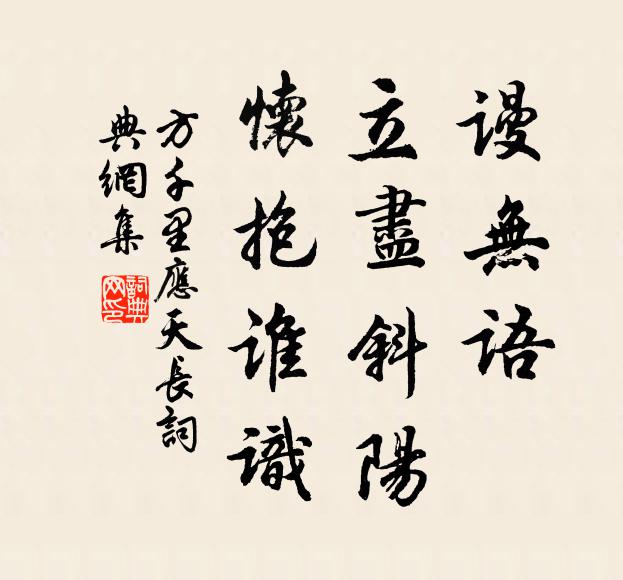 謾無語
立盡斜陽
懷抱誰識
方千里應天長詞
典網集
詞典网印